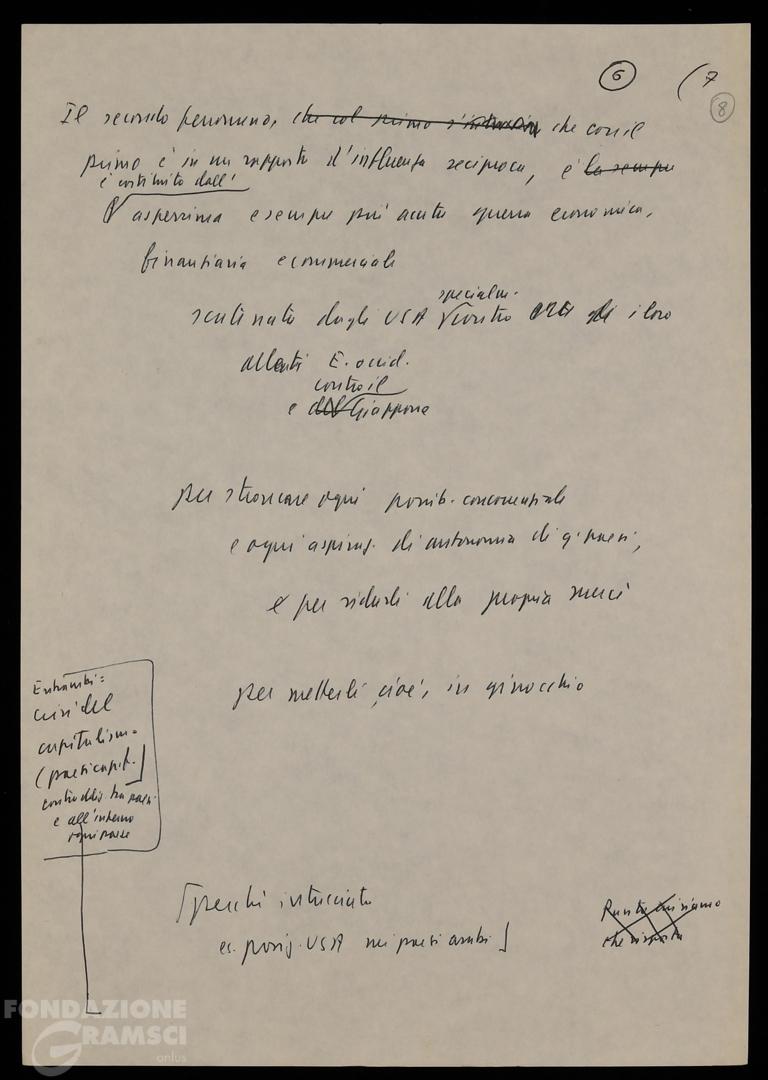 6 (7
8
Il secondo fenomeno, che col primo s'intreccia che con il
primo è in un rapporto d'influenza reciproca, è la sempre
è costituito dall'
asperrima e sempre più acuta guerra economica,
finanziaria e commerciale
scatenata dagli USA specialm. contro i loro
alleati E. occid.
contro il
e del Giappone
per stroncare ogni possib. concorrenziale
e ogni aspiraz. di autonomia di q. paesi,
e per ridurli alla propria mercé
per metterli, cioè, in ginocchio
Entrambi:
crisi del
capitalism.
(paesi capit.]
contraddiz. tra paesi
e all'interno
ogni paese
[perché intrecciato
es. posiz. USA nei paesi arabi]
che risposta
FONDAZIONE
GRAMSCI
onlus